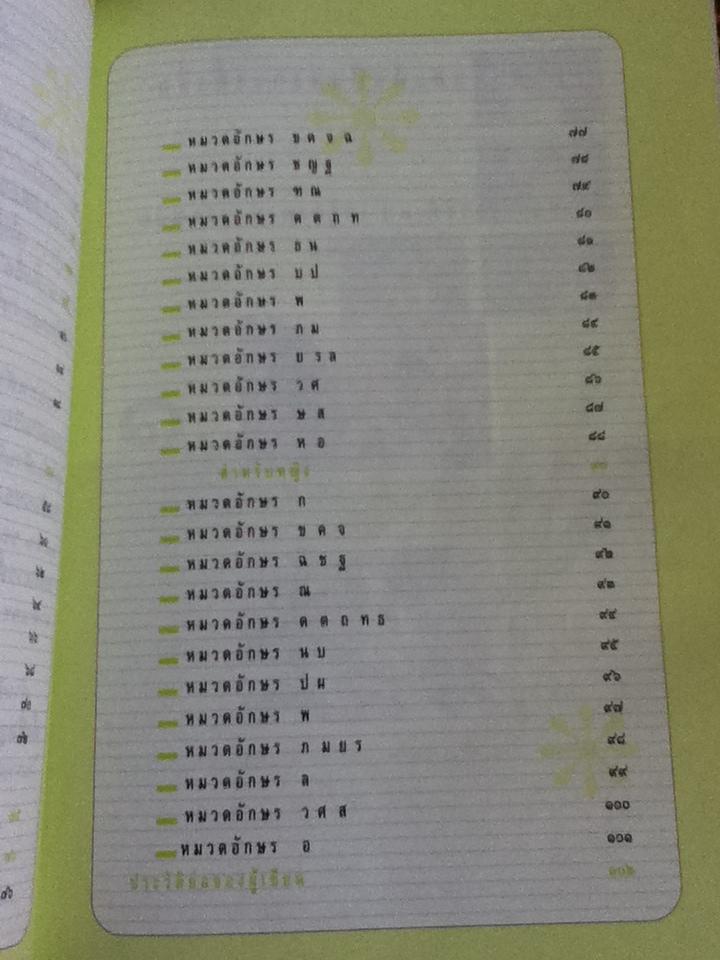 หมวดอักษร ข ค จ ฉ ๗๗
หมวดอักษร ช ญ ฐ ๗๘
หมวดอักษร ฑ ณ ๗๙
หมวดอักษร ด ต ถ ท ๘๐
หมวดอักษร ธ น ๘๑
หมวดอักษร บ ป ๘๒
หมวดอักษร พ ๘๓
หมวดอักษร ภ ม ๘๔
หมวดอักษร ย ร ล ๘๕
หมวดอักษร ว ศ ๘๖
หมวดอักษร ษ ส ๘๗
หมวดอักษร ห อ ๘๘
สำหรับหญิง ๙๐
หมวดอักษร ก ๙๐
หมวดอักษร ข ค จ ๙๑
หมวดอักษร ฉ ช ฐ ๙๒
หมวดอักษร ณ ๙๓
หมวดอักษร ด ต ถ ท ธ ๙๔
หมวดอักษร น บ ๙๕
หมวดอักษร ป ผ ๙๖
หมวดอักษร พ ๙๗
หมวดอักษร ภ ม ย ร ๙๘
หมวดอักษร ล ๙๙
หมวดอักษร ว ศ ส ๑๐๐
หมวดอักษร อ ๑๐๑
ประวัติย่อของผู้เขียน ๑๐๒